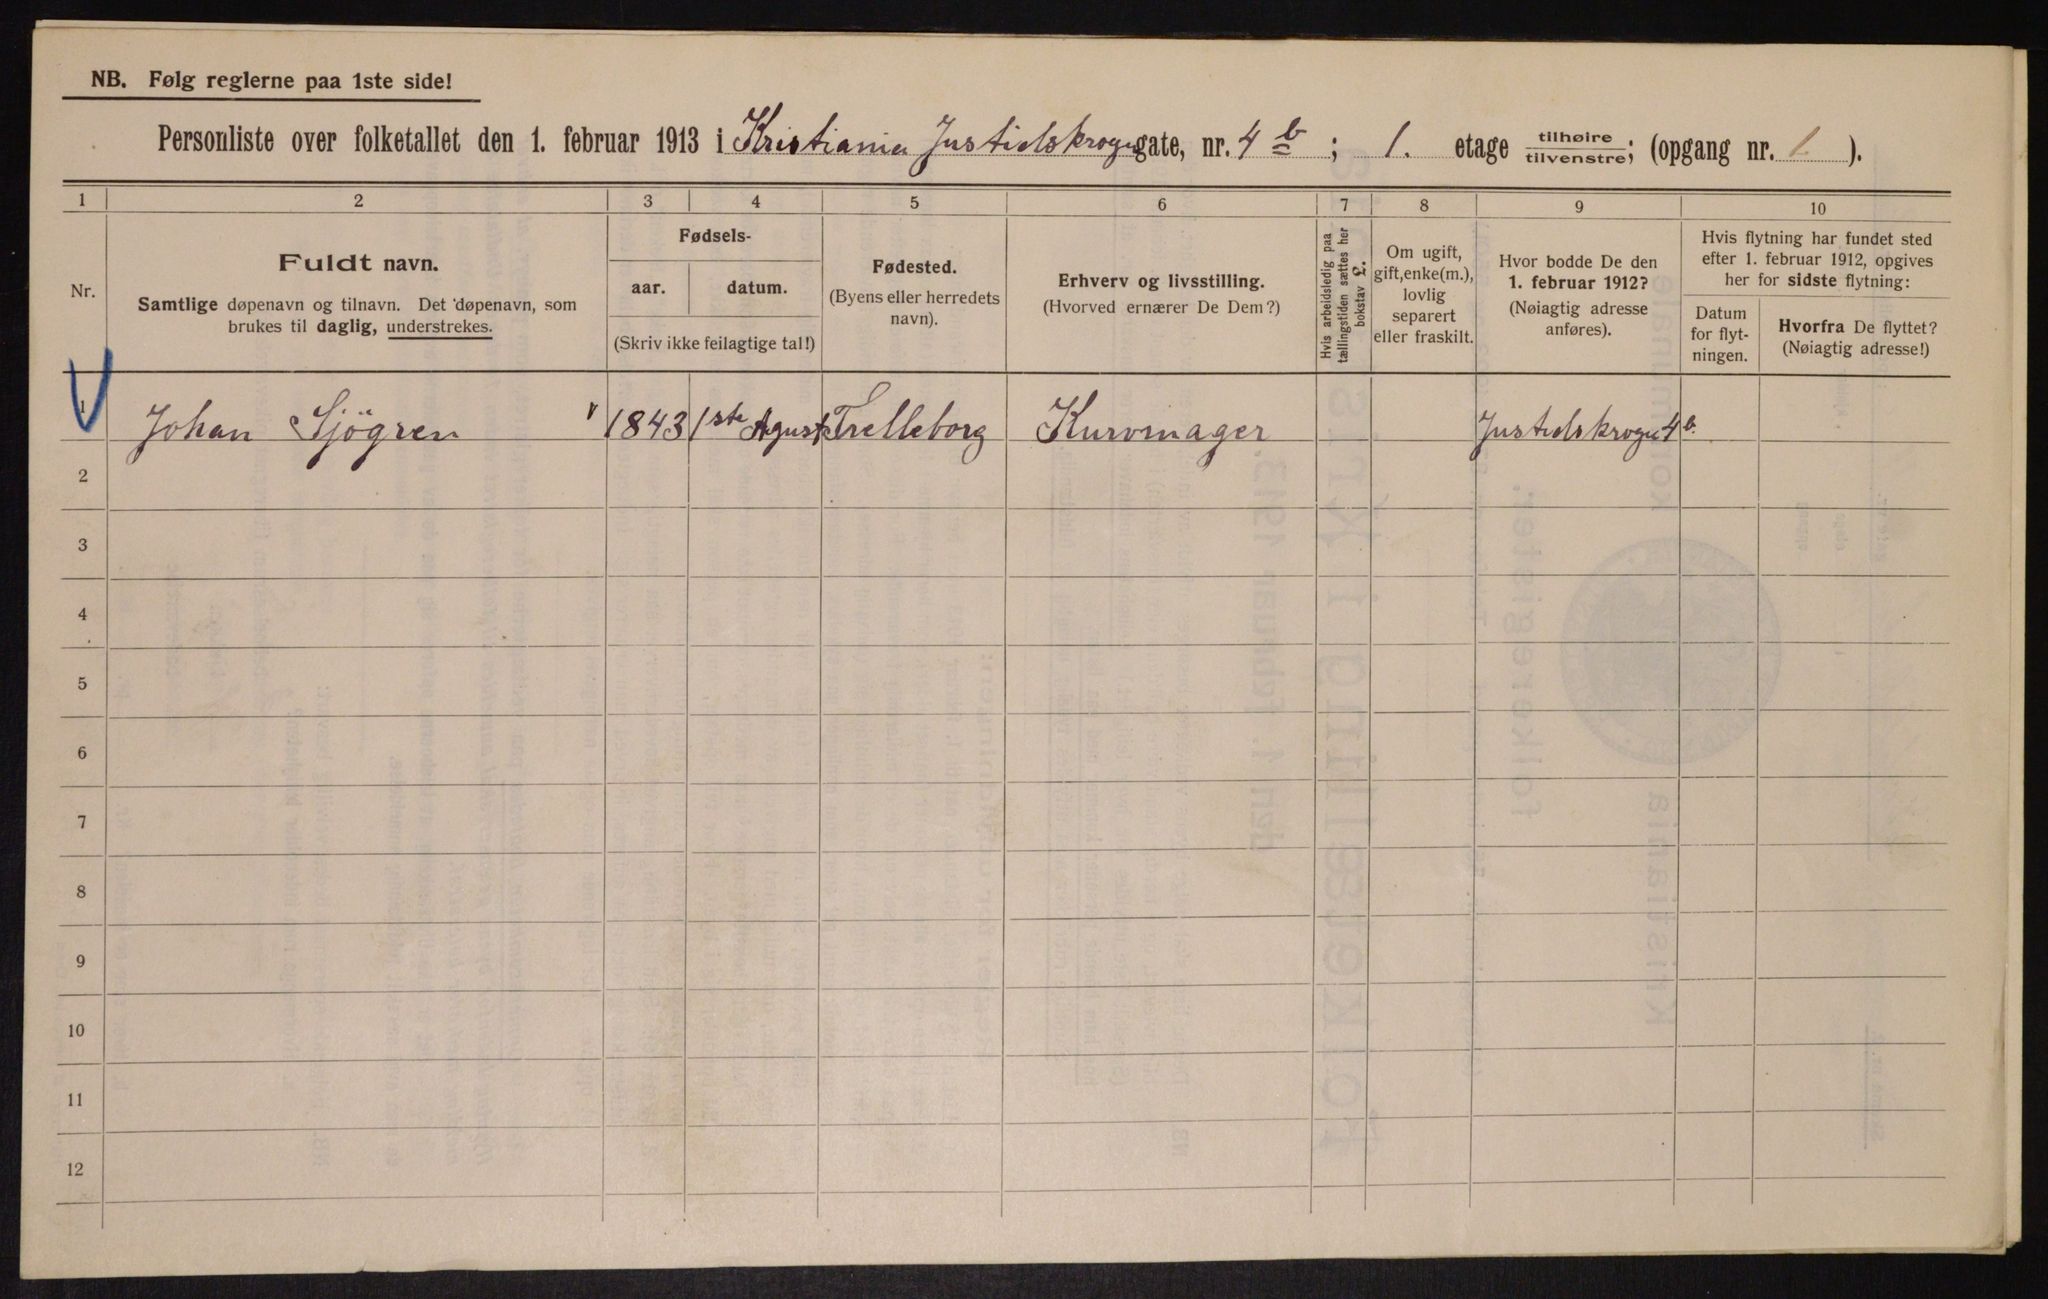 NB. Følg reglerne paa 1ste side!
Personliste over folketallet den 1. februar 1913 i Kristiania Justidskrogu gate, nr. 4 b ; 1. etage tilhøire/tilvenstre; (opgang nr. 1 ).
1 2 3 4 5 6 7 8 9 10
Nr.
Fuldt navn.
Samtlige døpenavn og tilnavn. Det døpenavn, som
brukes til daglig, understrekes.
Fødsels-
aar. datum.
(Skriv ikke feilagtige tal!)
Fødested.
(Byens eller herredets
navn).
Erhverv og livsstilling.
(Hvorved ernærer De Dem?)
Hvis arbeidsledig paa
tællingstiden sættes her
bokstav L.
Om ugift,
gift, enke(m.),
lovlig
separert
eller fraskilt.
Hvor bodde De den
1. februar 1912?
(Nøiagtig adresse
anføres).
Hvis flytning har fundet sted
efter 1. februar 1912, opgives
her for sidste flytning:
Datum
for flyt-
ningen.
Hvorfra De flyttet?
(Nøiagtig adresse!)
1 Johan Sjögren 1843 1ste Agust Trelleborg Kurvmager Justidskrogu 4 b.
2
3
4
5
6
7
8
9
10
11
12